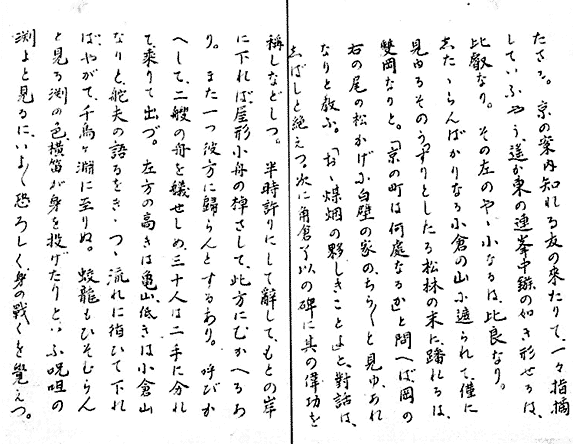 たさる。京の案内知れる友の来たりて、一々指摘
していふやう、遥か東の連峯中鏃の如き形せるは、
比叡なり。その左のやゝ小なるは、比良なり。
志たゝらんばかりなる小倉の山に遮られて、僅に
見ゆるそのうつすりとしたる松林の末に、踏れるは、
雙岡なりと。「京の町は何處なるか」と問へば、岡の
右の尾の松かげに白壁の家の、ちら〱と見ゆ、あれ
なりと教ふ。「お、煤烟の夥しきことよ」と、對話は、
志ばしと絶えつ。次に角倉了以の碑に其の偉功を
稱しなどしつ。半時許りにして辭して、もとの岸
に下れば、屋形小舟の棹さして、此方にむかへるあ
り。また一つ彼方に歸らんとするあり。呼びか
へして、二艘の舟を艤せしめ、三十人は二手に分れ
て、乘りて出づ。左方の高きは亀山、低きは小倉山
なりと、舵夫の語るをきゝつゝ流れに指ひて下れ
ば、やがて、千鳥ヶ淵に至りぬ。蛟龍もひそむらん
と見る渕の色、横笛が身を投げたりといふ呪咀の
渕よと見るに、いよ〱恐ろしく身の戰くを覺えつ。